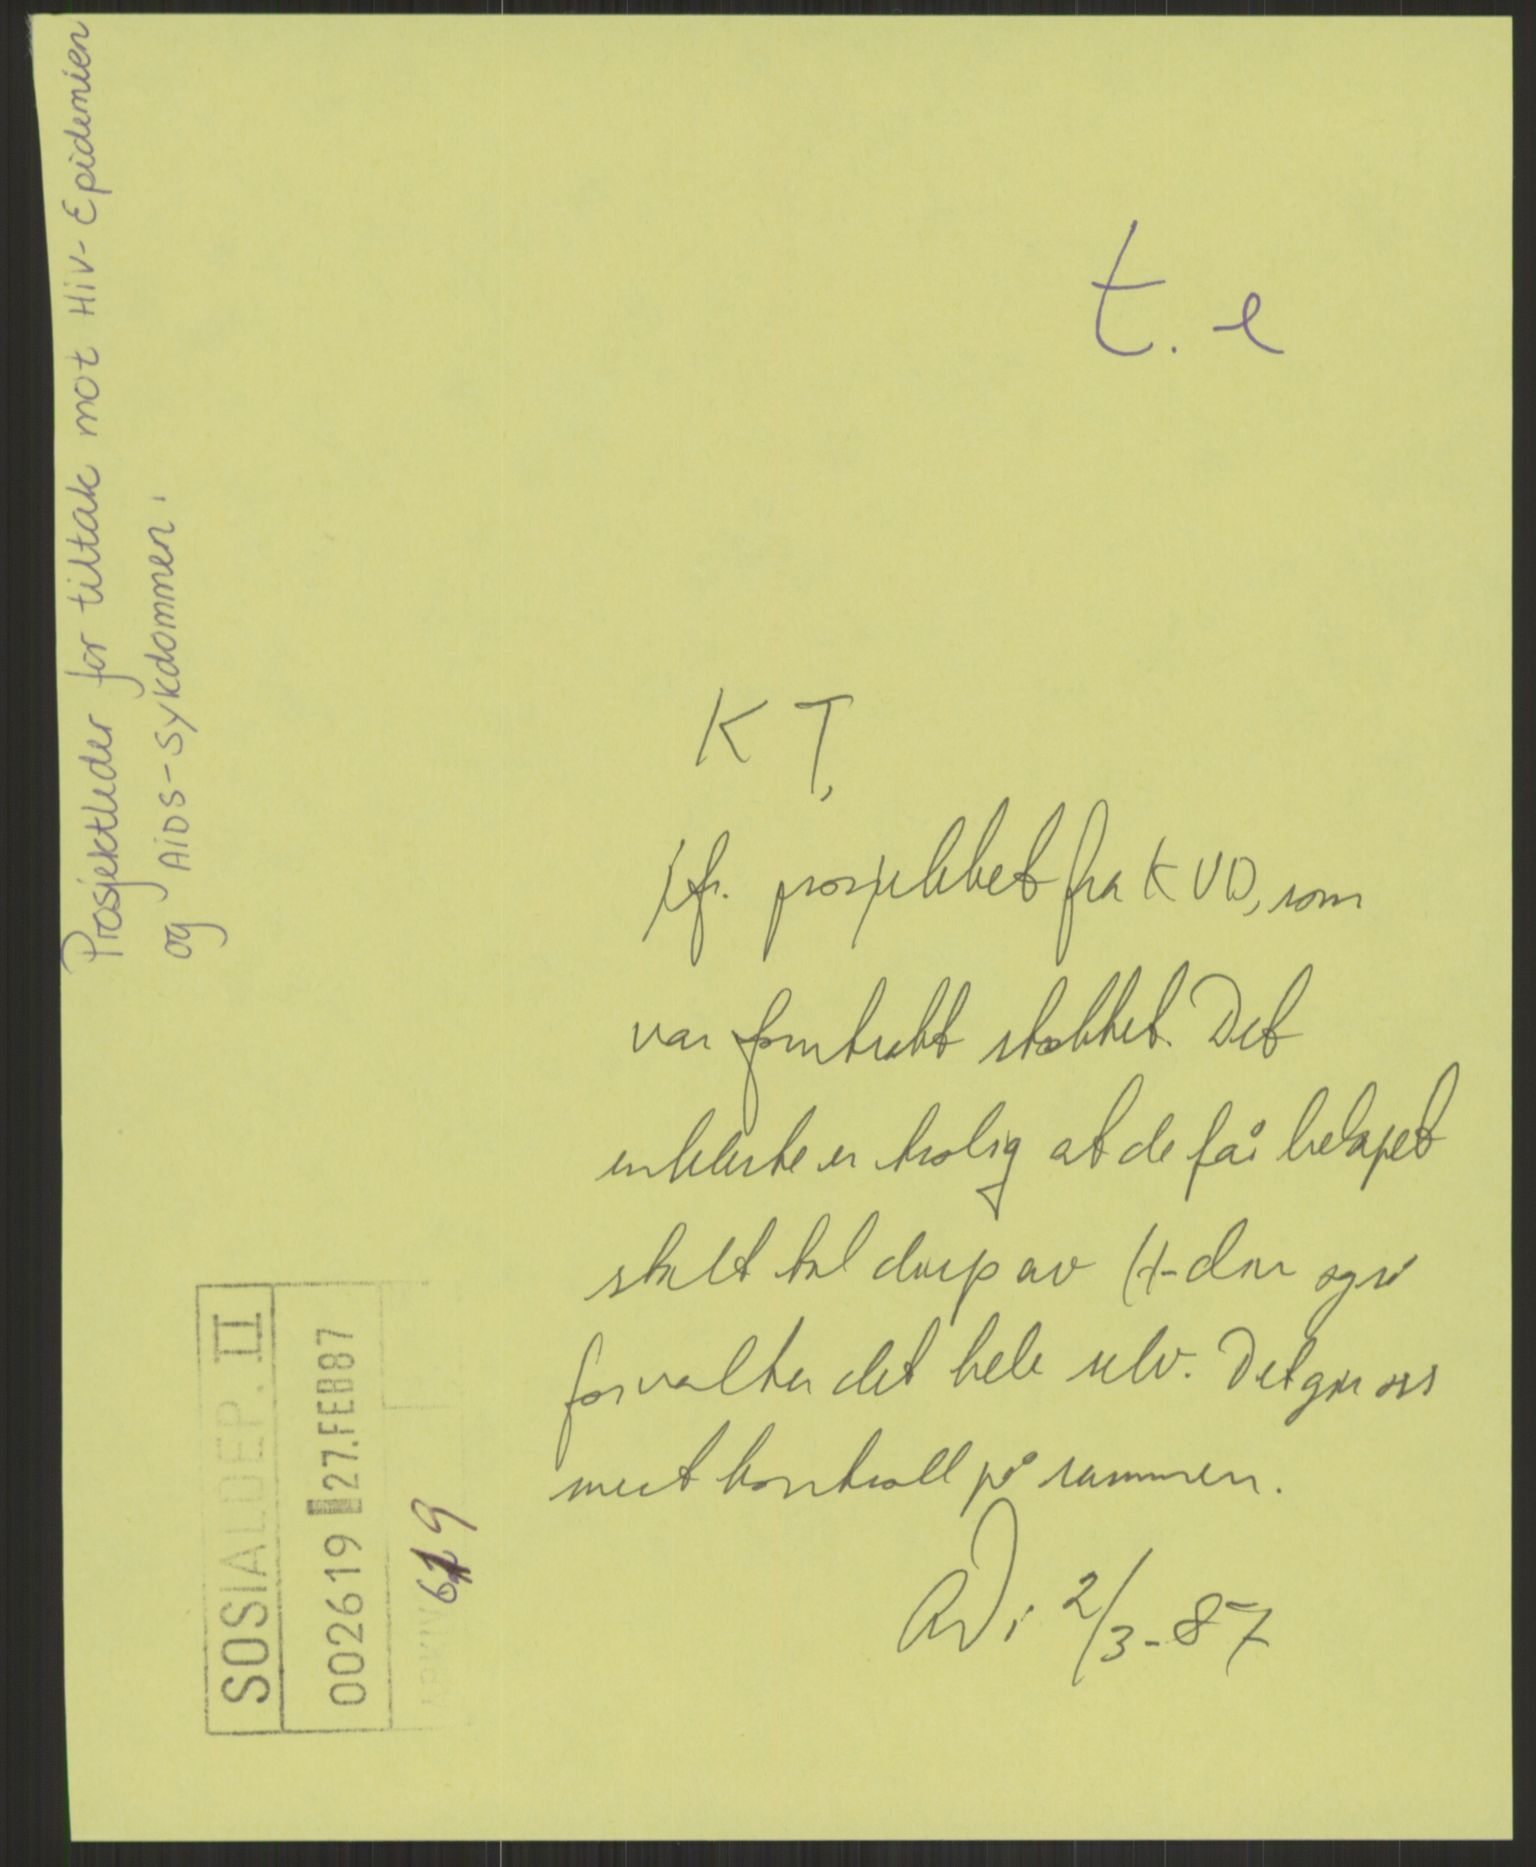 Prosjektleder for tiltak mot Hiv-Epidemien
og AiDS-sykdommen.
t. e
K T,
jfr. prosjektet fra KUD, som
var forutsatt støttet. Det
enkleste er trolig at de får beløpet
stilt til disp av H-dir også
forvalter det hele selv. Det gir oss
mest kontroll på rammen.
2/3-87
SOSIALDEP. II
002619 27.FEB87
ARKIV
619